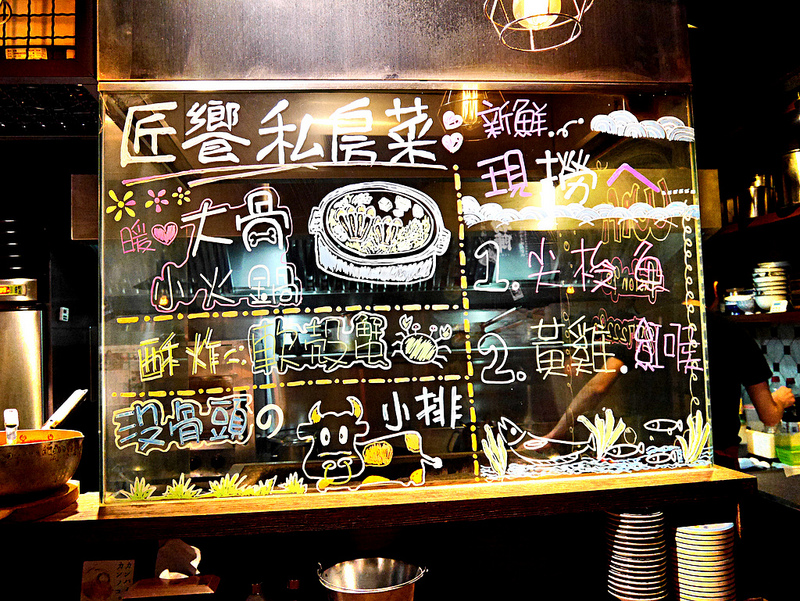 匠饗私房菜
暖大骨
小火鍋
酥炸軟殼蟹
沒骨頭の小排
新鮮
現撈
1.尖梭魚
2.黃雞魽